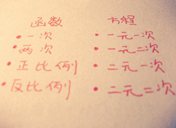 函数 方程
• 一次 • 一元一次
• 两次 • 一元二次
• 正比例 • 二元一次
• 反比例 • 二元二次